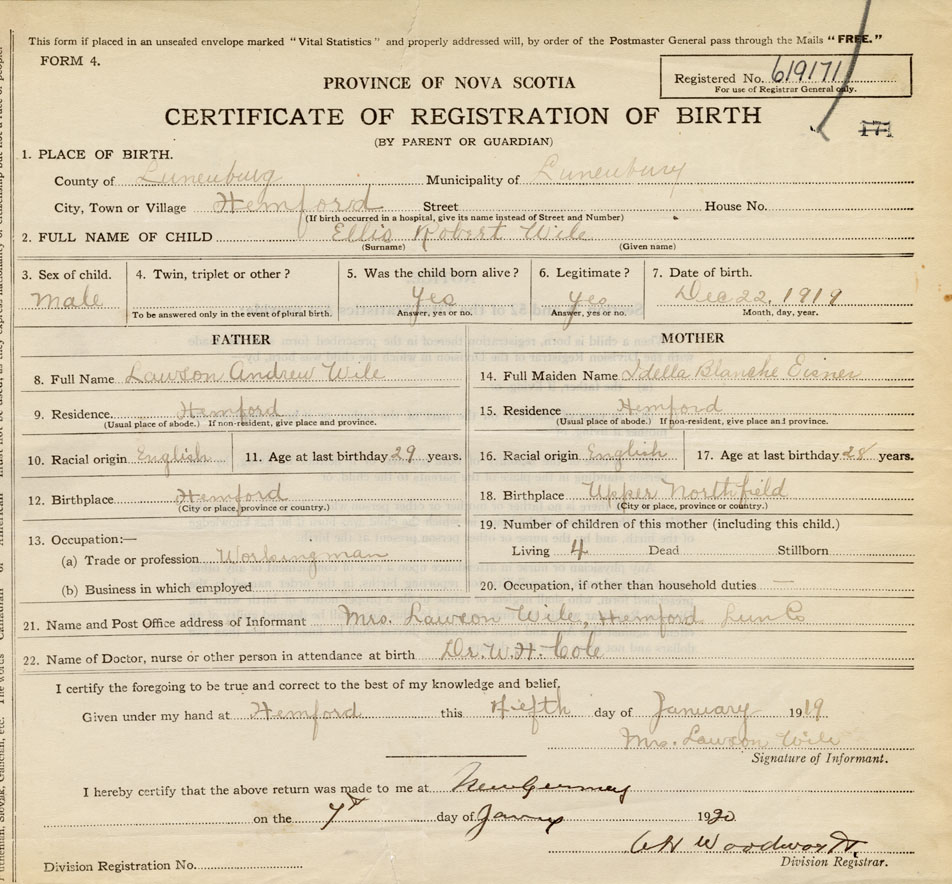 This form if placed in an unsealed envelope marked "Vital Statistics" and properly addressed will, by order of the Postmaster General pass through the Mails "FREE."
FORM 4.
Registered No. 619171
For use of Registrar General only.
PROVINCE OF NOVA SCOTIA
CERTIFICATE OF REGISTRATION OF BIRTH
(BY PARENT OR GUARDIAN)
1. PLACE OF BIRTH.
County of Lunenburg Municipality of Lunenburg
City, Town or Village Hemford Street House No.
(If birth occurred in a hospital, give its name instead of Street and Number)
2. FULL NAME OF CHILD Ellis Robert Wile
(Surname) (Given name)
3. Sex of child. 4. Twin, triplet or other? 5. Was the child born alive? 6. Legitimate? 7. Date of birth.
Male Yes yes Dec 22, 1919
To be answered only in the event of plural birth. Answer, yes or no. Answer, yes or no. Month, day, year.
FATHER MOTHER
8. Full Name Lawson Andrew Wile 14. Full Maiden Name Idella Blanche Eisner
9. Residence Hemford 15. Residence Hemford
(Usual place of abode.) If non-resident, give place and province. (Usual place of abode.) If non-resident, give place and province.
10. Racial origin English 11. Age at last birthday 29 years. 16. Racial origin English 17. Age at last birthday 28 years.
12. Birthplace Hemford 18. Birthplace Upper Northfield
(City or place, province or country.) (City or place, province or country.)
13. Occupation:— 19. Number of children of this mother (including this child.)
(a) Trade or profession Workingman Living 4 Dead Stillborn
(b) Business in which employed 20. Occupation, if other than household duties —
21. Name and Post Office address of Informant Mrs. Lawson Wile, Hemford Lun Co
22. Name of Doctor, nurse or other person in attendance at birth Dr. W. H. Cole
I certify the foregoing to be true and correct to the best of my knowledge and belief.
Given under my hand at Hemford this Fifth day of January 1919
Mrs. Lawson Wile
Signature of Informant.
I hereby certify that the above return was made to me at New Germany
on the 7th day of Jany 1920
Woodworth
Division Registrar.
Division Registration No.